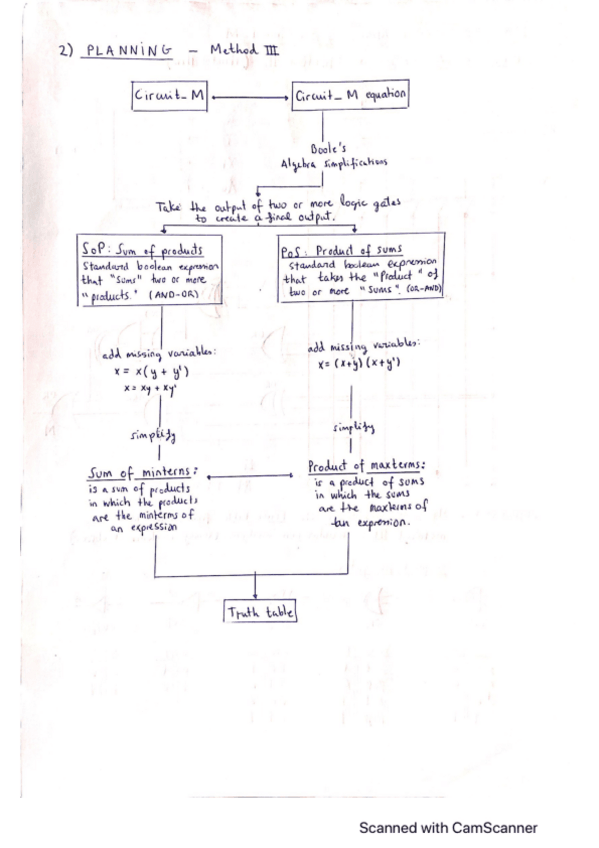 2) PLANNING - Method III
Circuit_M
Circuit_M equation
Boole's
Algebra simplifications
Take the output of two or more logic gates
to create a final output.
SoP: Sum of products
Standard boolean expression
that "sums" two or more
"products." (AND-OR)
PoS: Product of sums
Standard boolean expression
that takes the "Product" of
two or more "sums". (OR-AND)
add missing variables:
x = x(y + y')
x = xy + xy'
add missing variables:
x = (x+y) (x+y')
simplify
simplify
Sum of minterns:
is a sum of products
in which the products
are the minterms of
an expression
Product of maxterms:
is a product of sums
in which the sums
are the maxterms of
an expression.
Truth table
Scanned with CamScanner